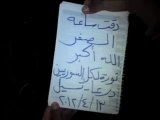 دقت ساعة
الصفر
الله أكبر
ثورة لكل السوريين
درعا - تسيل
٢٠١٢/٤/١٣